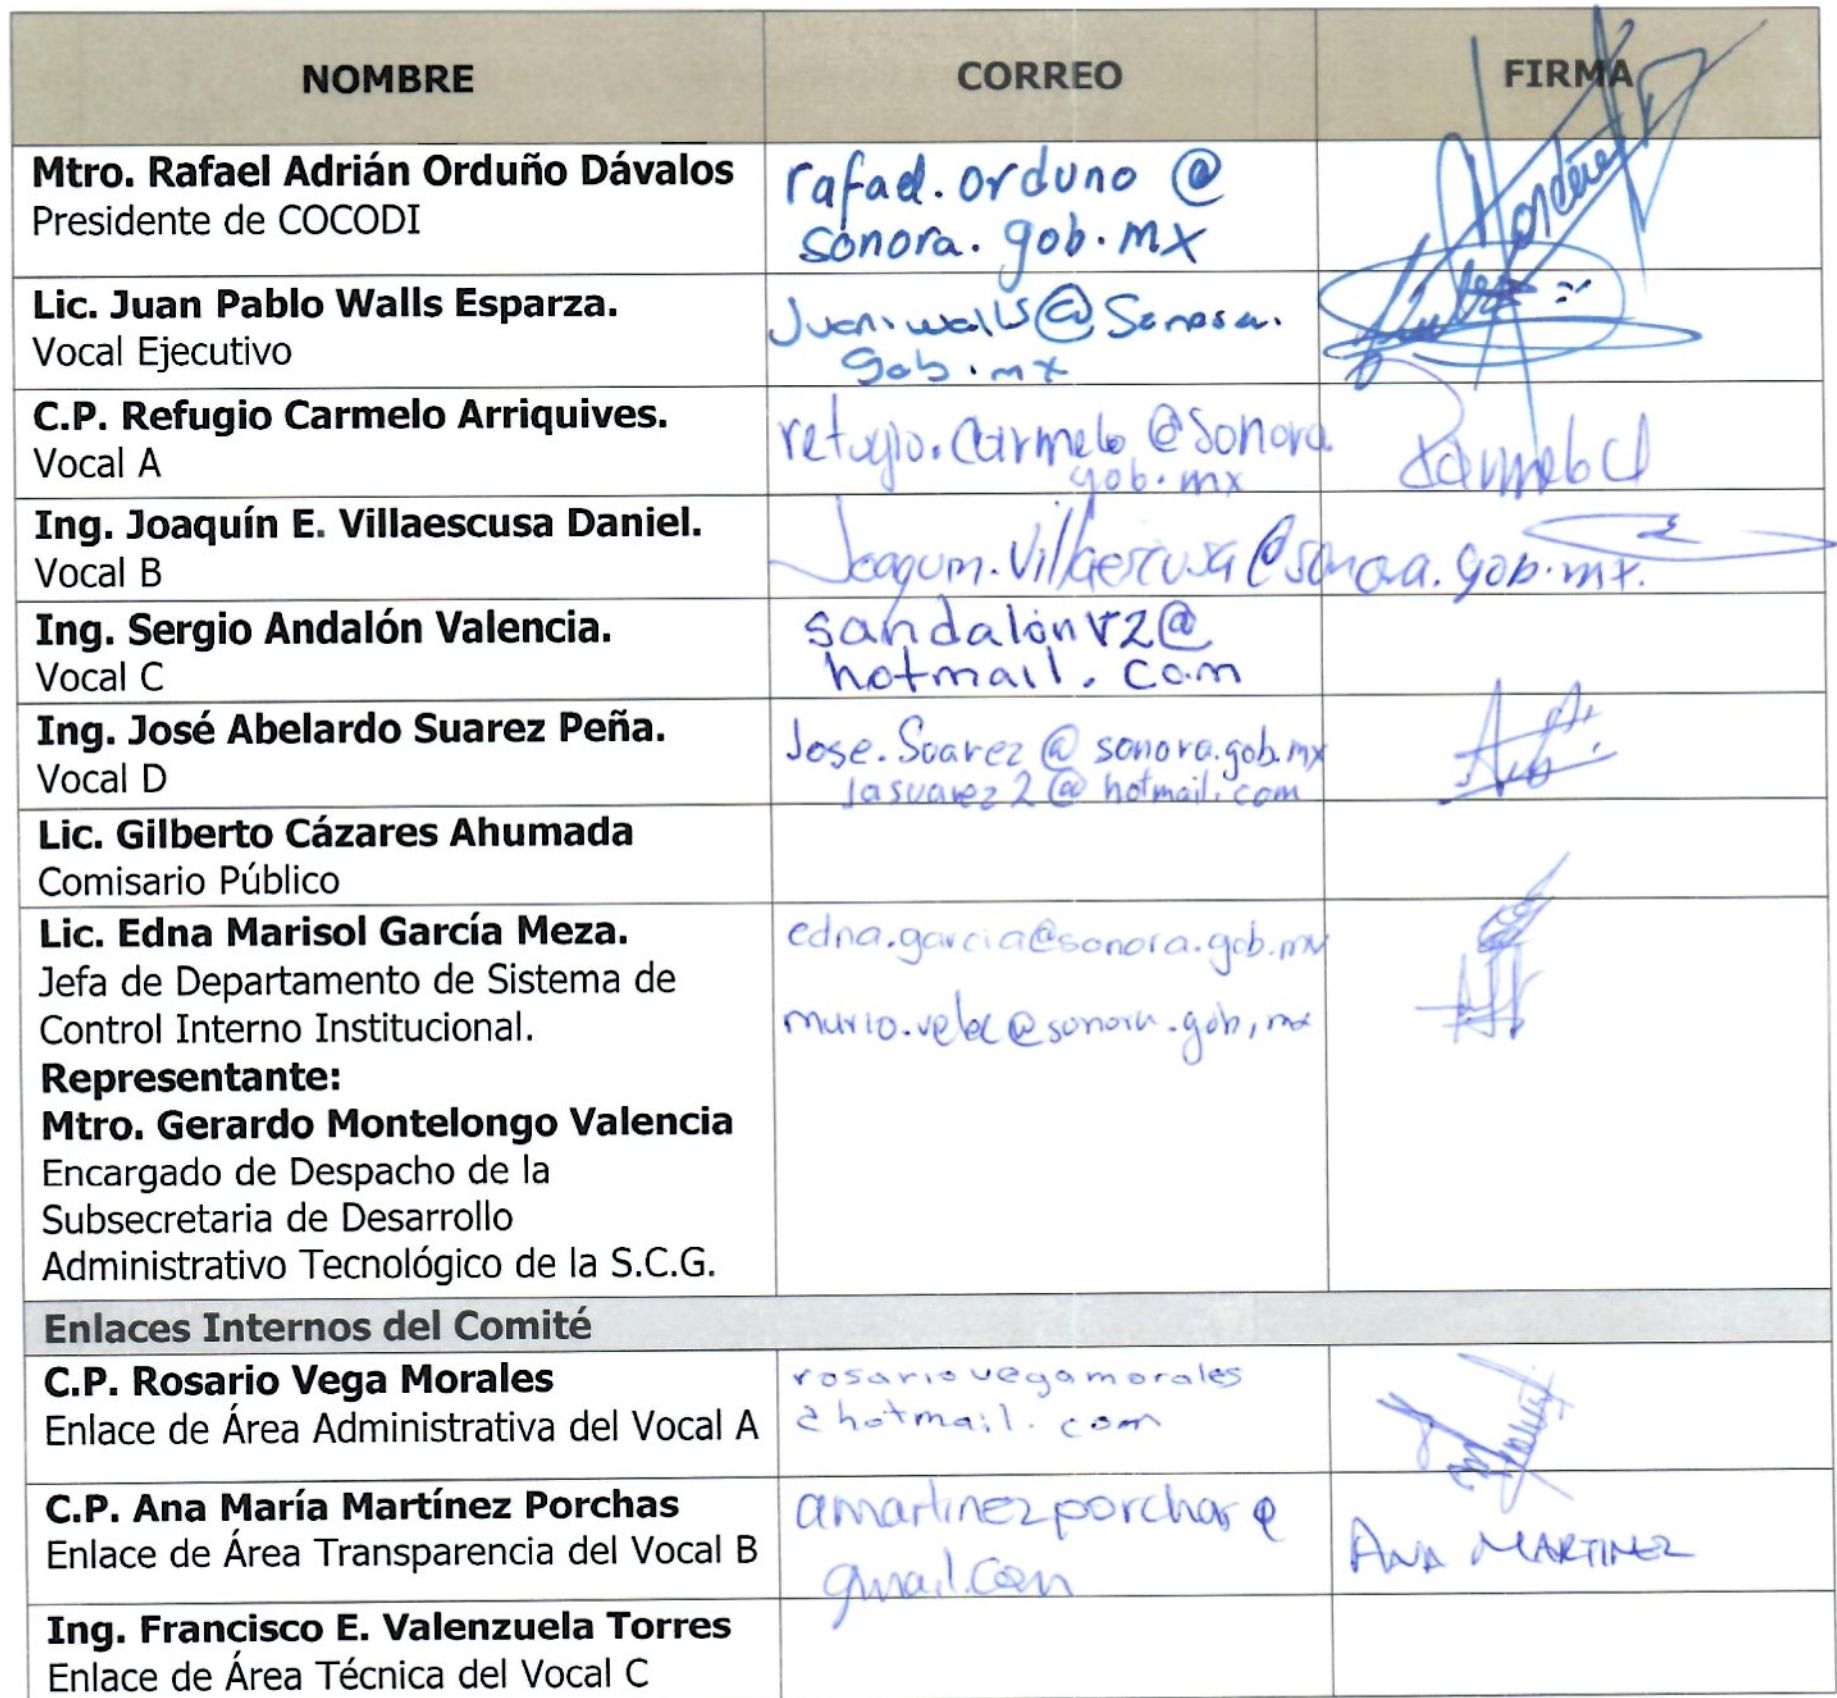 NOMBRE CORREO FIRMA
Mtro. Rafael Adrián Orduño Dávalos
Presidente de COCODI
rafael.orduno @
sonora.gob.mx
Lic. Juan Pablo Walls Esparza.
Vocal Ejecutivo
Juan.walls@Sonora.
gob.mx
C.P. Refugio Carmelo Arriquives.
Vocal A
refugio.Carmelo @Sonora.
gob.mx
Ing. Joaquín E. Villaescusa Daniel.
Vocal B
Joaquin.Villaescusa@sonora.gob.mx.
Ing. Sergio Andalón Valencia.
Vocal C
sandalónv2@
hotmail.com
Ing. José Abelardo Suarez Peña.
Vocal D
Jose.Suarez @ sonora.gob.mx
jasuarez2@ hotmail.com
Lic. Gilberto Cázares Ahumada
Comisario Público
Lic. Edna Marisol García Meza.
Jefa de Departamento de Sistema de
Control Interno Institucional.
Representante:
Mtro. Gerardo Montelongo Valencia
Encargado de Despacho de la
Subsecretaria de Desarrollo
Administrativo Tecnológico de la S.C.G.
edna.garcia@sonora.gob.mx
@sonora.gob,mx
Enlaces Internos del Comité
C.P. Rosario Vega Morales
Enlace de Área Administrativa del Vocal A
rosariovegamorales
@hotmail.com
C.P. Ana María Martínez Porchas
Enlace de Área Transparencia del Vocal B
amartinezporchas@
gmail.com
ANA MARTINEZ
Ing. Francisco E. Valenzuela Torres
Enlace de Área Técnica del Vocal C